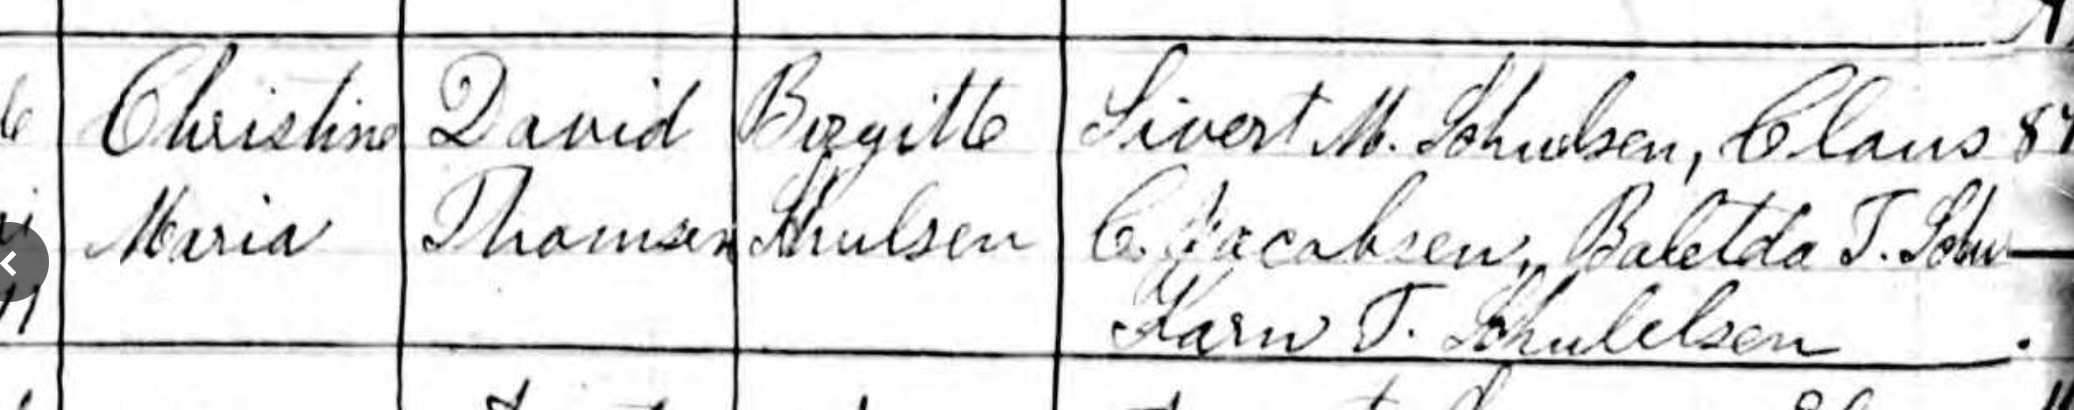 Christine David Birgitte Sivert M. Schulsen, Claus 87
Maria Thomsen Schulsen C. Jacobsen, Baletda T. Schu—
Karn T. Schulelsen .